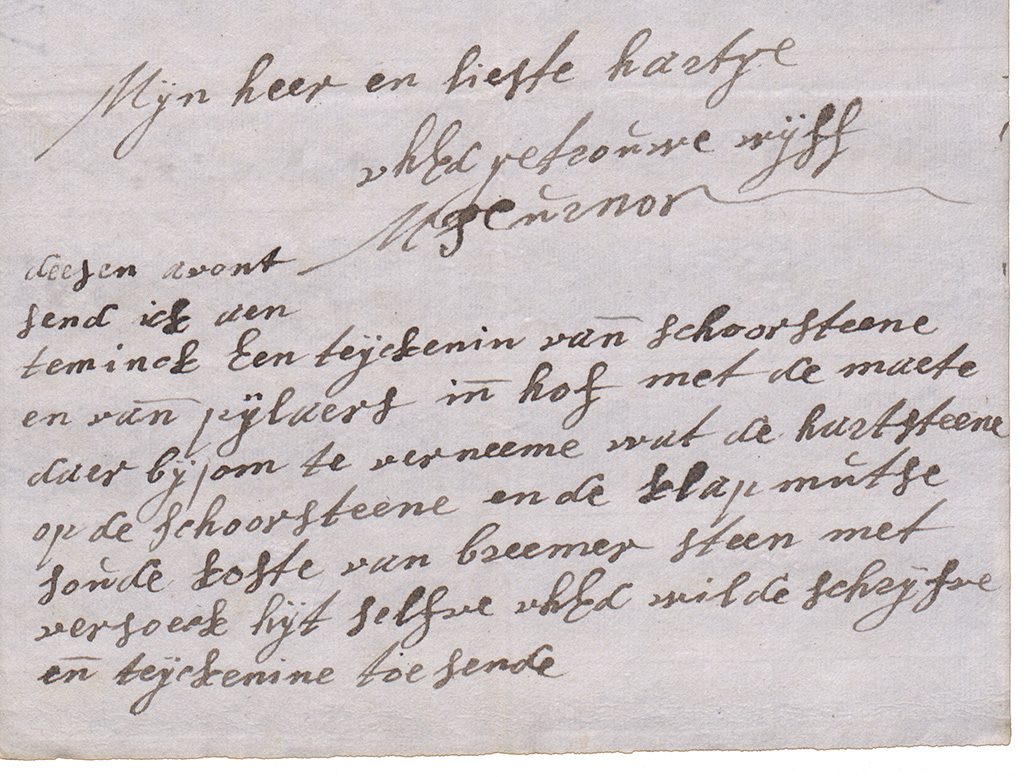 Mijn heer en liefste hartye
uhEd getrouwe wijff
M Teurnor
deesen avont
send ick aen
teminck Een teijckenin van schoorsteene
en van pijlaers in hof met de maete
daer bij om te verneeme wat de hartsteene
op de schoorsteene en de klap mutse
soude koste van breemer steen met
versoeck hijt selfve uhEd wilde schrijfve
en teijckenine toe sende